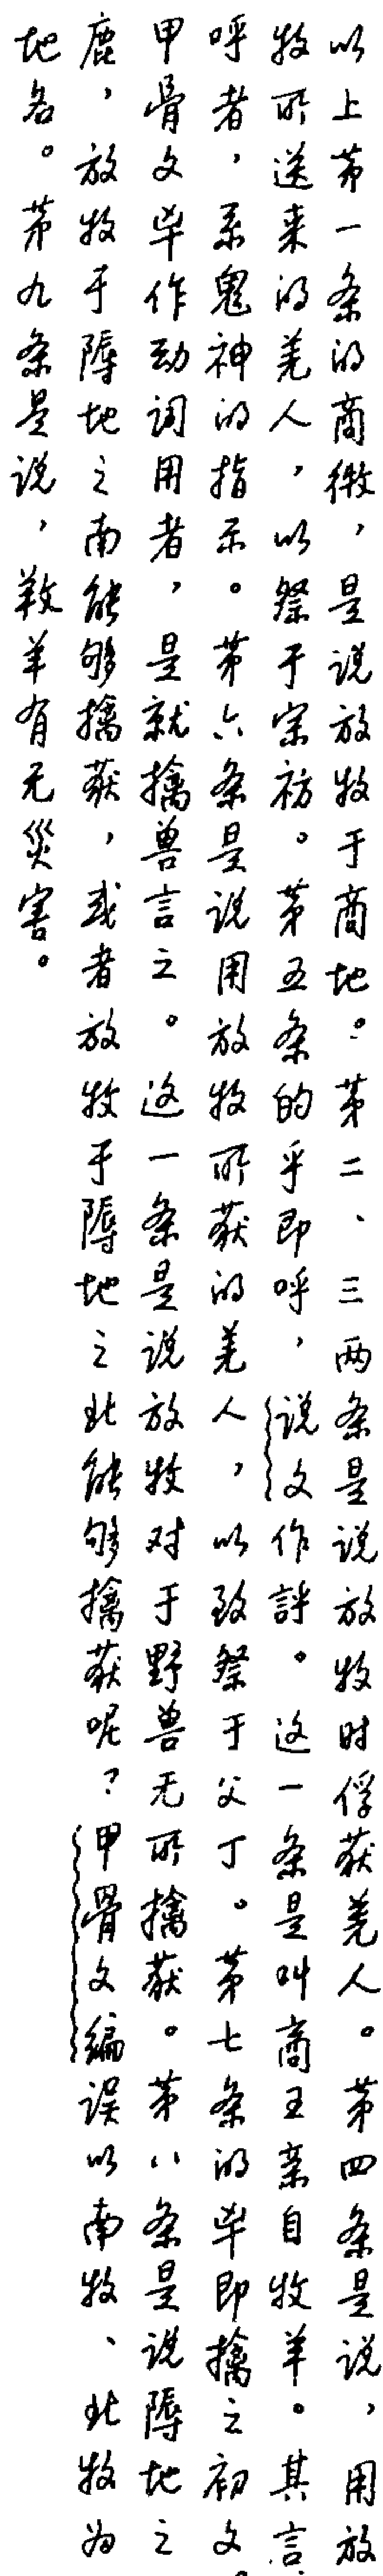 以上第一条的商㣲，是说放牧于商地。第二、三两条是说放牧时俘获羌人。第四条是说，用放
牧所送来的羌人，以祭于宗祊。第五条的乎即呼，说文作評。这一条是叫商王亲自牧羊。其言
呼者，系鬼神的指示。第六条是说用放牧所获的羌人，以致祭于父丁。第七条的毕即擒之初文
甲骨文毕作动词用者，是就擒兽言之。这一条是说放牧对于野兽无所擒获。第八条是说隯地之
鹿，放牧于隯地之南能够擒获，或者放牧于隯地之北能够擒获呢？甲骨文编误以南牧、北牧为
地名。第九条是说，𢼝羊有无災害。